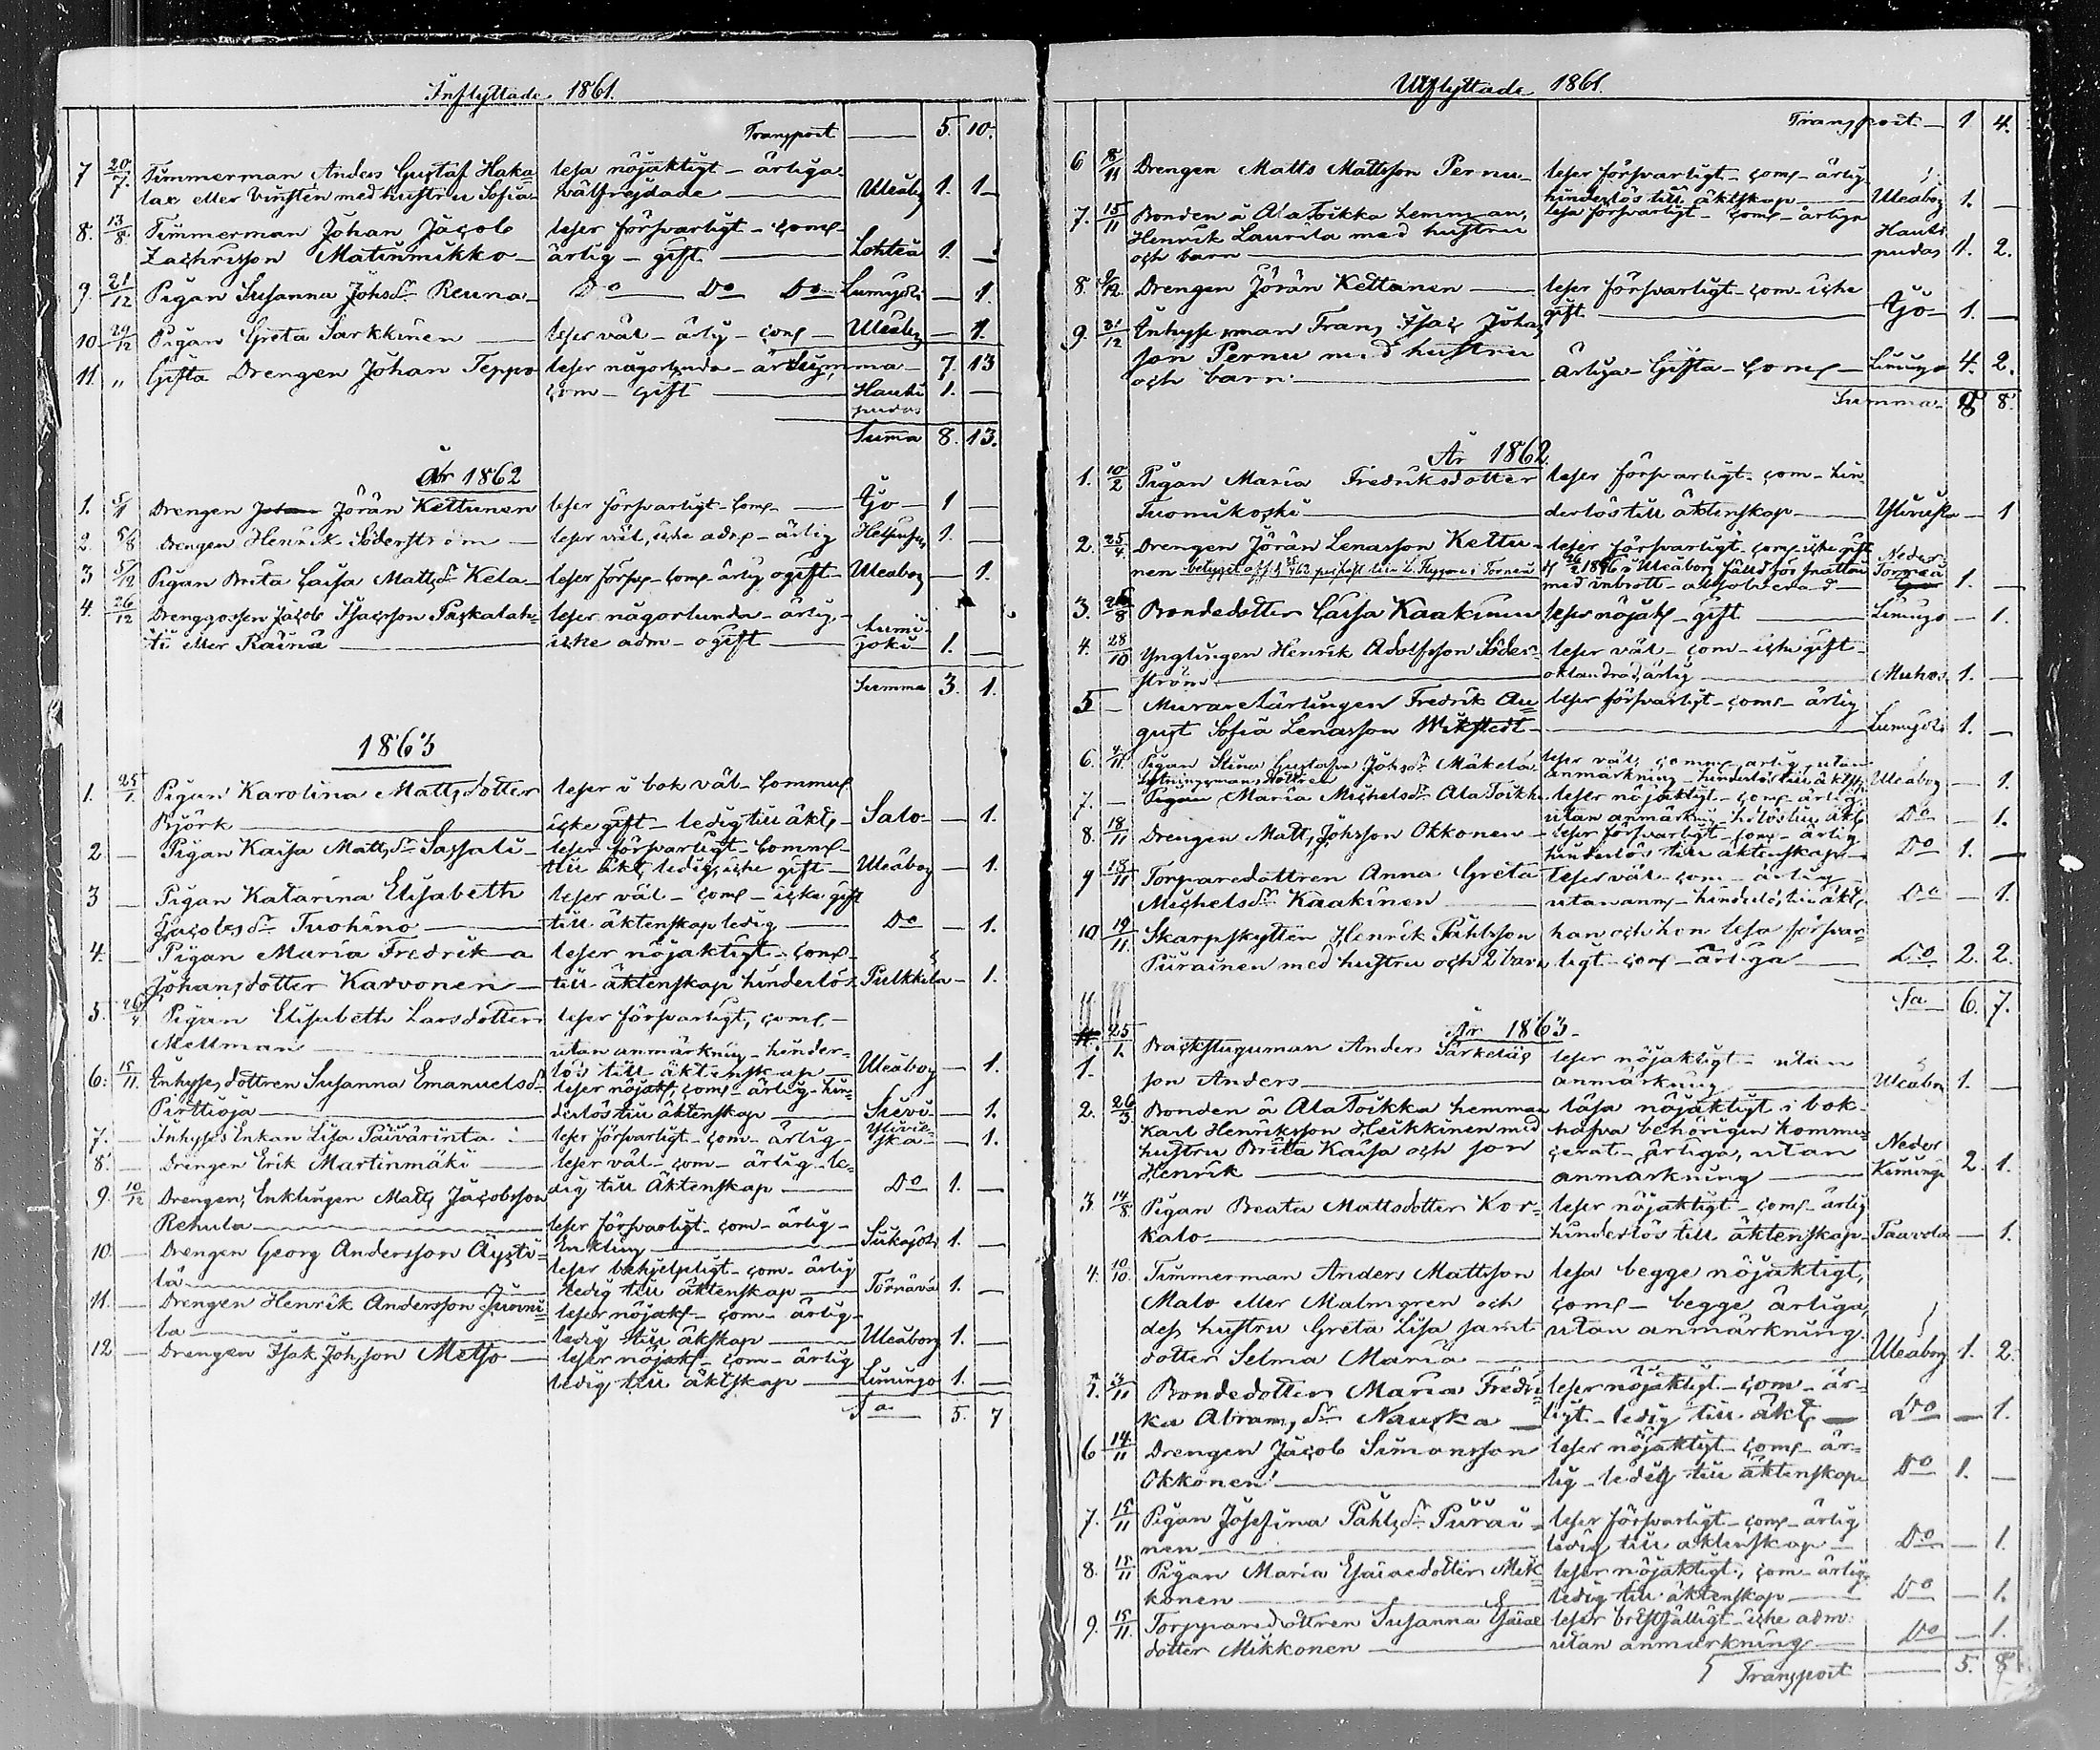 Inflyttade 1861.
Transport — 5. 10.
7 20/7. Timmerman Anders Gustaf Haka= lesa nöjaktigt - ärliga
lax eller Vinsten med hustru Sofia välfrejdade — Uleåbg 1. 1
8. 13/8. Timmerman Johan Jacob leser försvarligt - com-
Zachrisson Matinmikko - ärlig - gift — Lohteå 1. —
9. 21/12 Pigan Susanna Johsdr Reuna - Do — Do Do Lumijoki — 1.
10 29/12 Pigan Greta Sarkkinen — leser väl - ärlig - com - Uleåbg — 1.
Summa 7. 13
11. „ Gifta Drengen Johan Teppo leser någorlunda - ärlig
com - gift — Hauki 1. —
pudas
Suma 8. 13.
År 1862
1. 5/1 Drengen Johan Jöran Kettunen leser försvarligt - com - Ijo 1 —
2. 5/8 Drengen Henrik Söderström — leser väl, icke adm - ärlig Helsinfrs 1. —
3 5/12 Pigan Brita Caisa Mattsdr Kela - leser försv - com - ärlig ogift - Uleåborg — 1.
4. 26/12 Drenggossen Jacob Isacsson Paskalah= leser någorlunda - ärlig - Lumi-
ti eller Räinä — icke adm - ogift — joki 1. —
Summa 3. 1.
1863
1. 25/1. Pigan Karolina Mattsdotter leser i bok väl - Commuc
Björk — icke gift - ledig till äkts - Salo — 1.
2. — Pigan Kaisa Mattsdr Sassali - leser försvarligt - Comme -
till äkt ledig, icke gift - Uleåborg — 1.
3 — Pigan Katarina Elisabeth leser väl - com - icke gift
Jacobsdr Tuohino — till äktenskap ledig — Do — 1.
4. — Pigan Maria Fredrika leser nöjaktigt - com -
Johansdotter Karvonen — till äktenskap hinderlös Pulkkila — 1.
5. 26/4 Pigan Elisabeth Larsdotter leser försvarligt, com -
Mellman — utan anmärkning - hinder=
lös till äktenskap — Uleåborg — 1.
6: 15/11. Inhyses dottren Susanna Emanuelsdr leser nöjakt, com - ärlig - hin=
Pirttioja — derlös till äktenskap — Sievi — 1.
7. — Inhyses Enkan Lisa Päivärinta — leser försvarligt - com - ärlig - Ylivie=
ska — 1.
8. — Drengen Erik Martinmäki — leser väl - com - ärlig - le=
dig till äktenskap — Do 1. —
9. 10/12 Drengen, Enklingen Matts Jacobsson
Rehula — leser försvarligt - com - ärlig -
Enkling — Siikajoki 1. —
10. — Drengen Georg Andersson Äysti= leser behjelpligt - com - ärlig
lä — ledig till äktenskap — Törnävä 1. —
11. — Drengen Henrik Andersson Junni= leser nöjakt - com - ärlig -
la — ledig till äkskap — Uleåborg 1. —
12 — Drengen Isak Johsson Metso — leser nöjakt - com - ärlig
ledig till äktskap — Limingo 1. —
Sa 5. 7
Utflyttade 1861.
Transport — 1 4.
6 15/11 Drengen Matts Mattsson Pernu - leser försvarligt - com - ärlig
hinderlös till äktskap — Uleåborg 1. —
7. 15/11 Bonden å AlaToikka hemman, lesa försvarligt - com - ärliga
Henrik Laurila med hustru Hauki
och barn — pudas 1. 2.
8. 9/12. Drengen Jöran Kettunen — leser försvarligt - com - icke
gift. — Ijo 1. —
9. 31/12 Inhysesman Frans Isac Johas
son Pernu med hustru
och barn — ärliga - Gifta - com - Limingo 4. 2.
Summa 8 8.
År 1862.
1. 10/2 Pigan Maria Fredriksdotter leser försvarligt - com - hin
Tuomikoski — derlös till äktenskap — Ylivieska — 1
2. 25/4 Drengen Jöran Lenasson Kettu- leser försvarligt - com - icke gift
nen i Uleåborg fälld för snatteri Neder
Torneå
med inbrott - absolverad — 1. —
3. 26/8 Bondedotter Caisa Kaakinen leser nöjakt - gift — Limingo — 1.
4. 28/10 Ynglingen Henrik Adolfsson Söder= leser väl - com - icke gift -
ström — oklandrad, ärlig — Muhos 1. —
5 — Murarelärlingen Fredrik Au= leser försvarligt - com - ärlig
gust Sofia Lenasson Wikstedt — Lumijoki 1. —
6. Pigan Stina Gustafva Johsdr Mäkelä leser väl, comm, ärlig, utan
anmärkning - hinderlös till äktsk Uleåborg — 1.
7. — Pigan Maria Michelsdr AlaToikka leser nöjaktigt - com - ärlig
utan anmärkning - hlös till äkt Do — 1.
8. 18/11 Drengen Matts Johsson Okkonen - leser försvarligt - com - ärlig
hinderlös till äktenskap — Do 1. —
9 18/11 Torparedottren Anna Greta leser väl - com - ärlig
Michelsdr Kaakinen — utan anm - hinderlös till äkt Do — 1.
10 19/11. Skarpskytten Henrik Påhlsson han och hon lesa försvar=
Piirainen med hustru och 2 barn ligt com - ärliga — Do 2. 2.
Sa 6. 7.
År 1863 -
1. 25/1. Backstuguman Anders Särkeläs leser nöjaktigt - utan
son Anders — anmärkning — Uleåbrg 1. —
2. 26/3 Bonden å AlaToikka hemman läsa nöjaktigt i bok -
Karl Henriksson Heikkinen med hafva behörigen kommu=
hustru Brita Kaisa och son cerat - ärliga, utan Neder
Henrik — anmärkning — Kiminge 2. 1.
3. 14/8. Pigan Beata Mattsdotter Kor= leser nöjaktigt - com - ärlig
kalo — hinderlös till äktenskap - Paavola — 1.
4. 10/10. Timmerman Anders Mattsson lesa begge nöjaktigt,
Malo eller Malmgren och com - begge ärliga,
dess hustru Greta Lisa samt utan anmärkning.
dotter Selma Maria — Uleåborg 1. 2.
5. 3/11 Bondedotter Maria Fredri= leser nöjaktigt - com - är=
ka Abramsdr Nauska — ligt - ledig till äkt — Do — 1.
6 14/11 Drengen Jacob Simonsson leser nöjaktigt - com - är=
Okkonen — lig - ledig till äktenskap Do 1. —
7. 15/11 Pigan Josefina Påhlsdr Piirai= leser försvarligt - com - ärlig
nen — ledig till äktenskap — Do — 1.
8. 15/11 Pigan Maria Esaiaedotter Mik= leser nöjaktigt, com - ärlig
konen — ledig till äktenskap — Do — 1.
9. 15/11. Torpparedottren Susanna Esaiae leser bristfälligt - icke adm:
dotter Mikkonen — utan anmärkning — Do — 1.
Transport — 5. 8